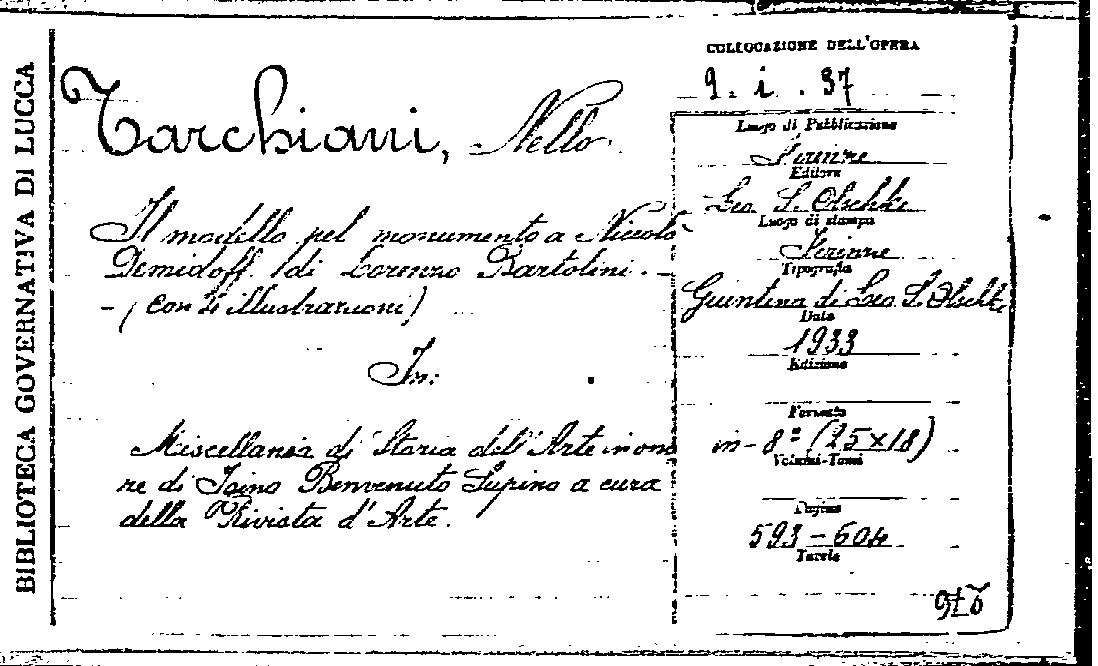 BIBLIOTECA GOVERNATIVA DI LUCCA
Tarchiani, Nello
Il modello pel monumento a Niccolò
Demidoff di Lorenzo Bartolini. -
- (con 4 illustrazioni)
In:
Miscellanea di Storia dell'Arte in ono
re di Igino Benvenuto Supino a cura
della Rivista d'Arte.
COLLOCAZIONE DELL'OPERA
9. i. 37
Luogo di Pubblicazione
Firenze
Editore
Leo S. Olschki
Luogo di stampa
Firenze
Tipografia
Giuntina di Leo S. Olschki
Data
1933
Edizione
Formato
in-8º (25x18)
Volumi-Tomi
Pagine
593-604
Tavole